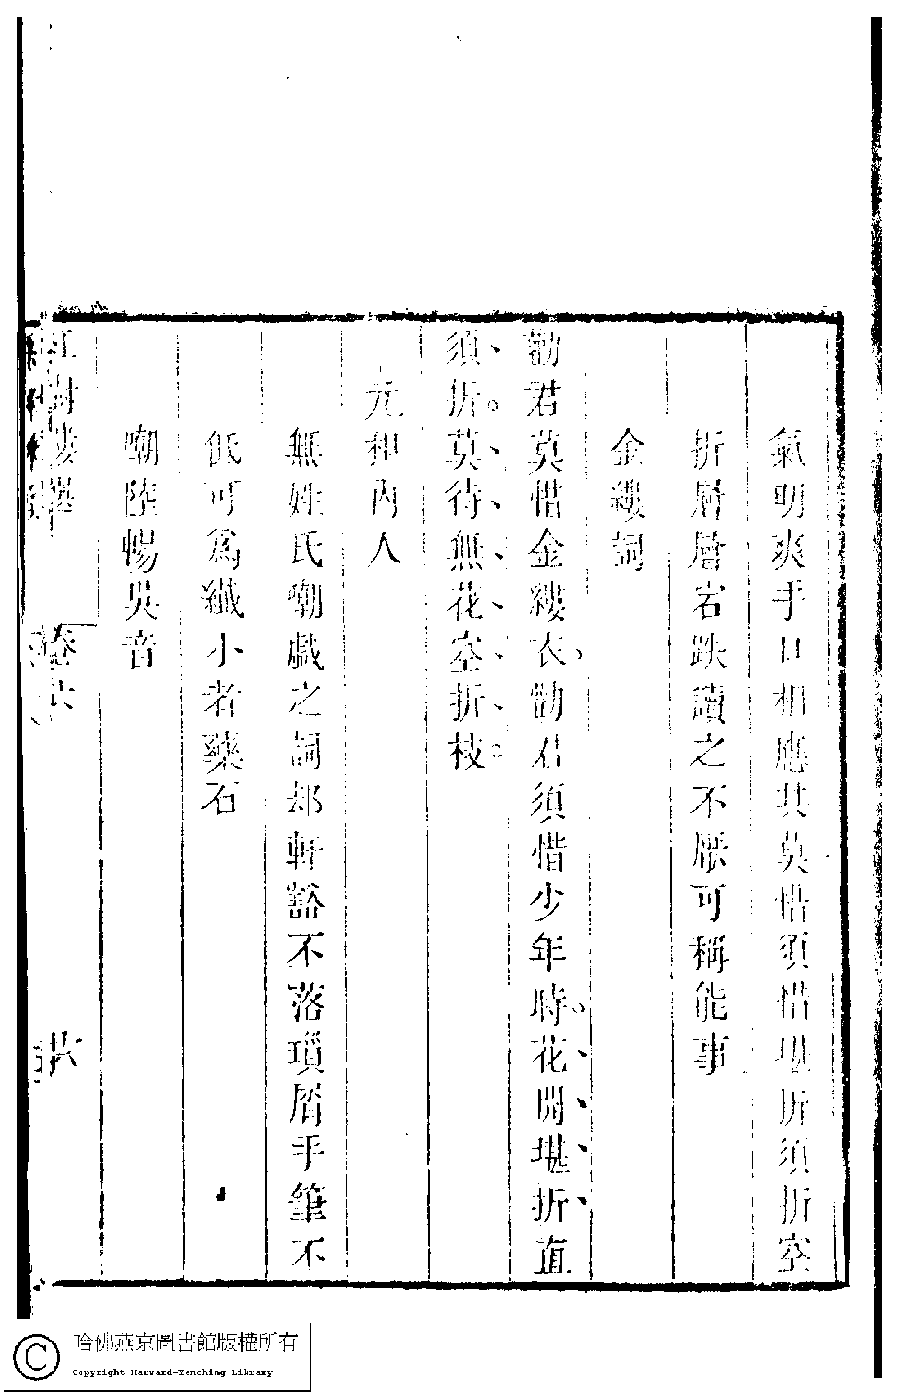 氣明爽手口相應其莫惜須惜堪折須折空
折層層宕跌讀之不厭可稱能事
金縷詞
勸君莫惜金縷衣勸君須惜少年時花開堪折直
須折莫待無花空折枝
元和內人
無姓氏嘲戲之詞却軒豁不落瑣屑手筆不
低可為纖小者藥石
嘲陸暢吳音
卷六
哈佛燕京圖書館版權所有
Copyright Harvard-Yenching Library